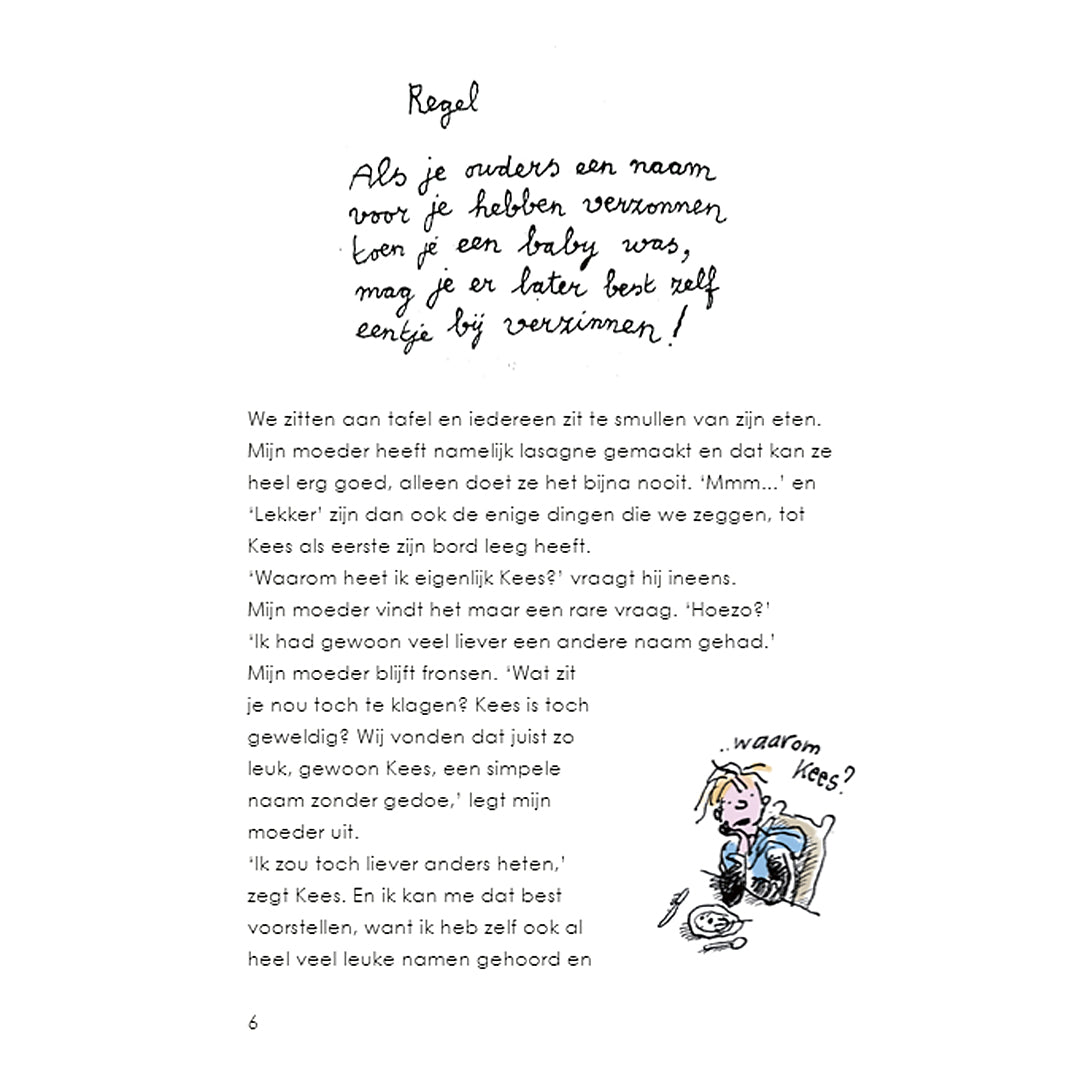 Regel
Als je ouders een naam
voor je hebben verzonnen
toen je een baby was,
mag je er later best zelf
eentje bij verzinnen!
We zitten aan tafel en iedereen zit te smullen van zijn eten.
Mijn moeder heeft namelijk lasagne gemaakt en dat kan ze
heel erg goed, alleen doet ze het bijna nooit. ‘Mmm...’ en
‘Lekker’ zijn dan ook de enige dingen die we zeggen, tot
Kees als eerste zijn bord leeg heeft.
‘Waarom heet ik eigenlijk Kees?’ vraagt hij ineens.
Mijn moeder vindt het maar een rare vraag. ‘Hoezo?’
‘Ik had gewoon veel liever een andere naam gehad.’
Mijn moeder blijft fronsen. ‘Wat zit
je nou toch te klagen? Kees is toch
geweldig? Wij vonden dat juist zo
leuk, gewoon Kees, een simpele
naam zonder gedoe,’ legt mijn
moeder uit.
‘Ik zou toch liever anders heten,’
zegt Kees. En ik kan me dat best
voorstellen, want ik heb zelf ook al
heel veel leuke namen gehoord en
..waarom
Kees?
6